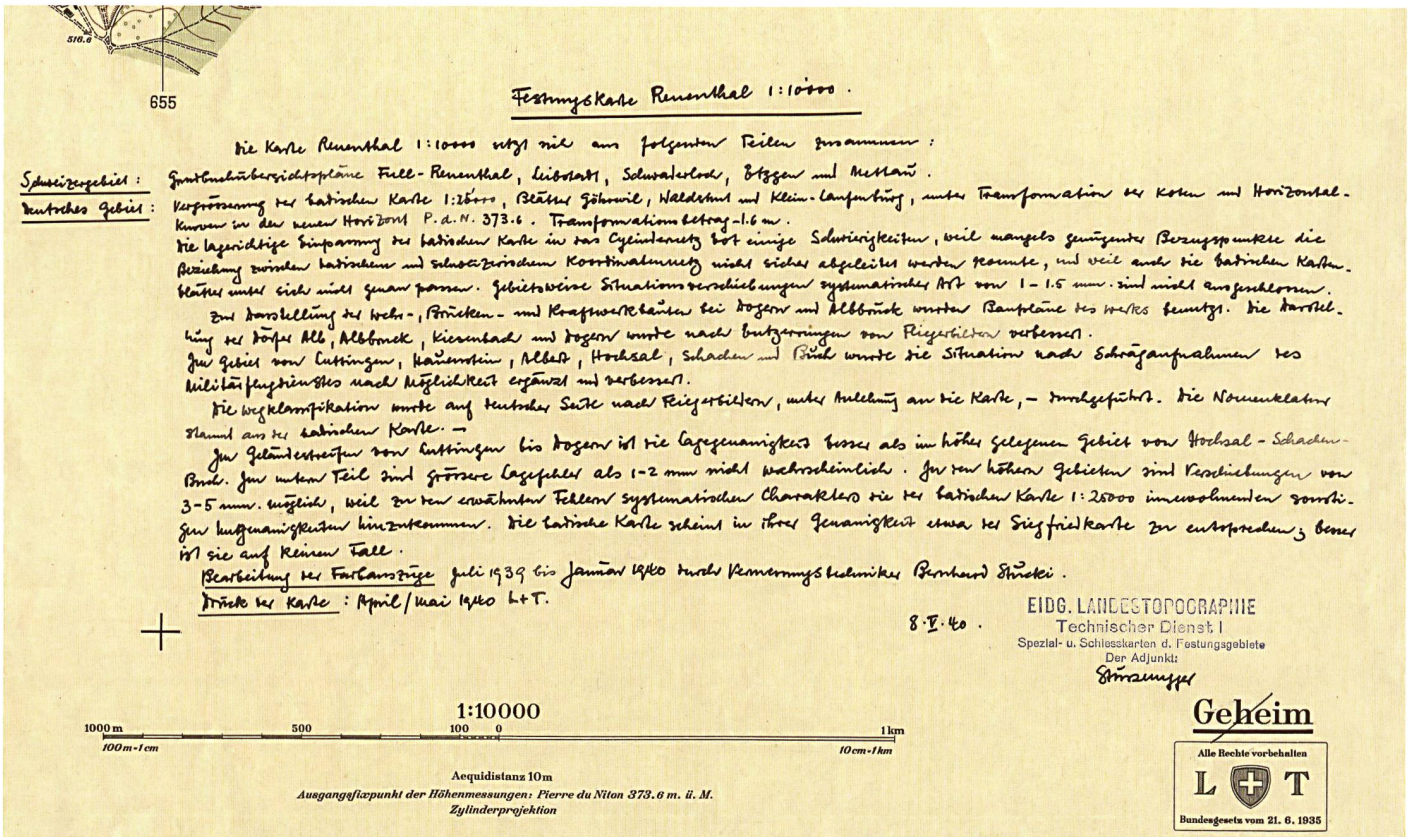 516.6
655
Festungskarte Reuenthal 1:10000.
Die Karte Reuenthal 1:10000 setzt sich aus folgenden Teilen zusammen:
Schweizergebiet: Grundbuchübersichtspläne Full-Reuenthal, Leibstadt, Schwaderloch, Etzgen und Mettau.
Deutsches Gebiet: Vergrösserung der badischen Karte 1:25000, Blätter Göhrwil, Waldshut und Klein-Laufenburg, unter Transformation der Koten und Horizontal-
kurven in den neuen Horizont P.d.N. 373.6. Transformationsbetrag -1.6 m.
Die lagerichtige Einpassung der badischen Karte in das Cylindernetz bot einige Schwierigkeiten, weil mangels genügender Bezugspunkte die
Beziehung zwischen badischem und schweizerischem Koordinatennetz nicht sicher abgeleitet werden konnte, und weil auch die badischen Karten-
blätter unter sich nicht genau passen. Gebietsweise Situationsverschiebungen systematischer Art von 1-1.5 mm. sind nicht ausgeschlossen.
Zur Darstellung der Wehr-, Brücken- und Kraftwerkbauten bei Dogern und Albbruck wurden Baupläne des Werks benutzt. Die Darstel-
lung der Dörfer Alb, Albbruck, Kiesenbach und Dogern wurde nach Entzerrungen von Fliegerbildern verbessert.
Im Gebiet von Luttingen, Hauenstein, Albert, Hochsal, Schachen und Buch wurde die Situation nach Schrägaufnahmen des
Militärflugdienstes nach Möglichkeit ergänzt und verbessert.
Die Wegklassifikation wurde auf deutscher Seite nach Fliegerbildern, unter Anlehnung an die Karte, - durchgeführt. Die Nomenklatur
stammt aus der badischen Karte. -
Im Geländestreifen von Luttingen bis Dogern ist die Lagegenauigkeit besser als im höher gelegenen Gebiet von Hochsal-Schachen-
Buch. Im untern Teil sind grössere Lagefehler als 1-2 mm nicht wahrscheinlich. In den höhern Gebieten sind Verschiebungen von
3-5 mm. möglich, weil zu den erwähnten Fehlern systematischen Charakters die der badischen Karte 1:25000 innewohnenden sonsti-
gen Ungenauigkeiten hinzukommen. Die badische Karte scheint in ihrer Genauigkeit etwa der Siegfriedkarte zu entsprechen; besser
ist sie auf keinen Fall.
Bearbeitung der Farbauszüge Juli 1939 bis Januar 1940 durch Vermessungstechniker Bernhard Stucki.
Druck der Karte: April/Mai 1940 L+T.
8.V.40.
EIDG. LANDESTOPOGRAPHIE
Technischer Dienst I
Spezial- u. Schiesskarten d. Festungsgebiete
Der Adjunkt:
Sturzenegger
Geheim
1:10000
1000 m 500 100 0 1 km
100 m=1 cm 10 cm=1 km
Aequidistanz 10 m
Ausgangsfixpunkt der Höhenmessungen: Pierre du Niton 373.6 m. ü. M.
Zylinderprojektion
Alle Rechte vorbehalten
L T
Bundesgesetz vom 21. 6. 1935